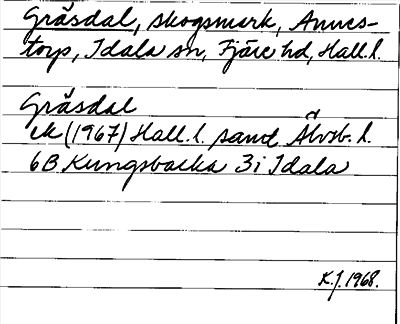 Gråsdal, skogsmark, Annes-
torp, Idala sn, Fjäre hd, Hall. l.
Gråsdal
ek (1967) Hall. l. samt Älvsb. l.
6B Kungsbacka 3i Idala
K.J. 1968.